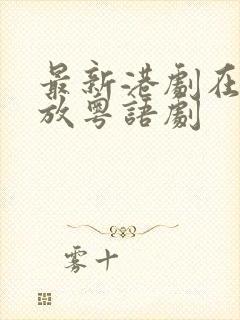 最新港劇在
放粵語劇
雾十